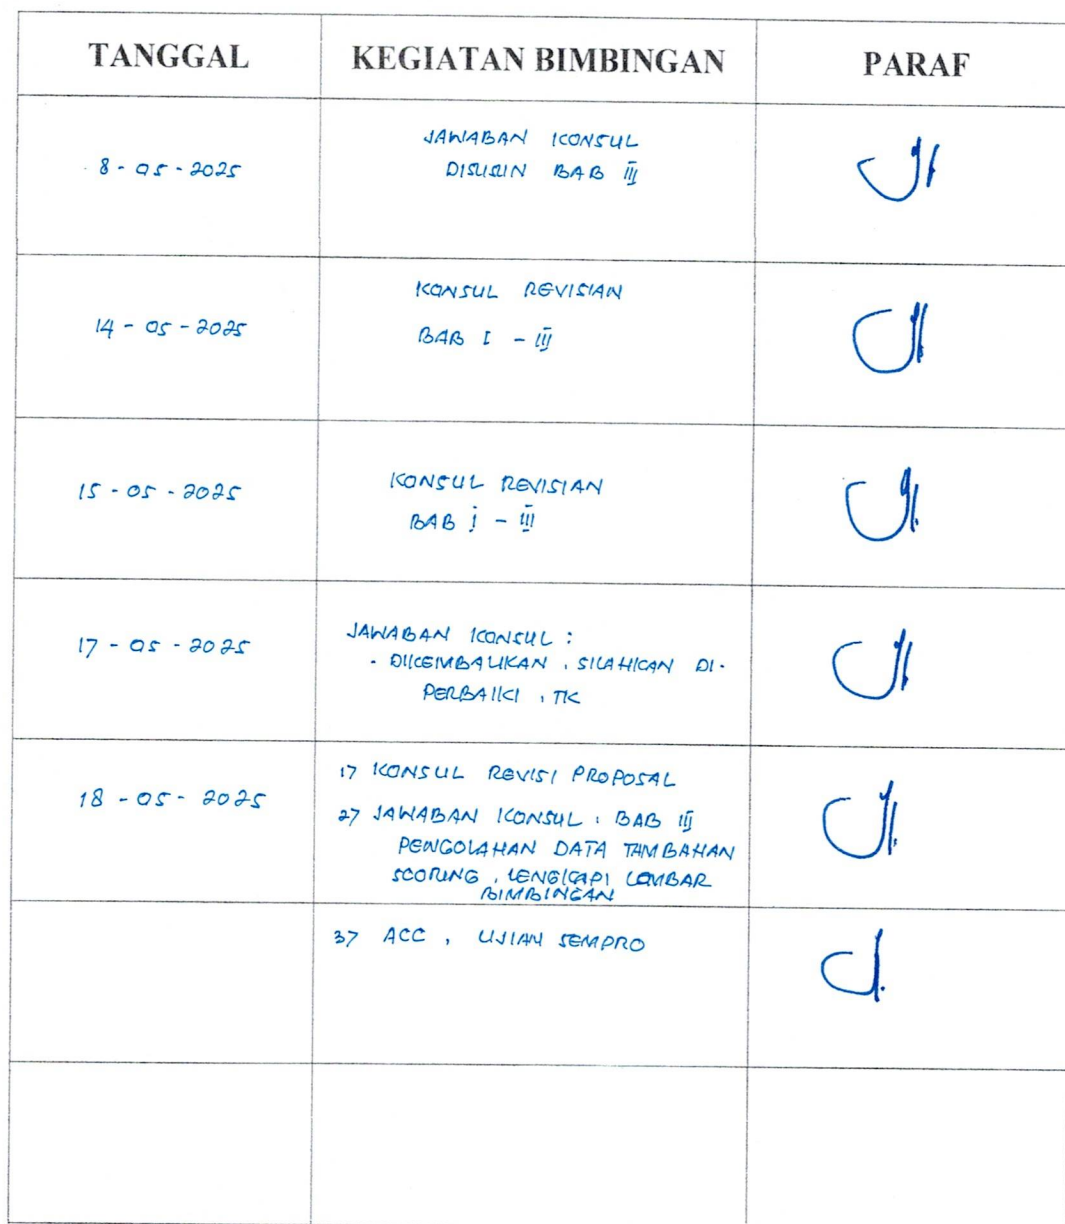 TANGGAL KEGIATAN BIMBINGAN PARAF
8 - 05 - 2025
JAWABAN KONSUL
DISUSUN BAB III
14 - 05 - 2025
KONSUL REVISIAN
BAB I - III
15 - 05 - 2025
KONSUL REVISIAN
BAB I - III
17 - 05 - 2025
JAWABAN KONSUL :
- DIKEMBALIKAN , SILAHKAN DI-
PERBAIKI , TK
18 - 05 - 2025
1> KONSUL REVISI PROPOSAL
2> JAWABAN KONSUL : BAB III
PENGOLAHAN DATA TAMBAHAN
SCORING , LENGKAPI LEMBAR
BIMBINGAN
3> ACC , UJIAN SEMPRO